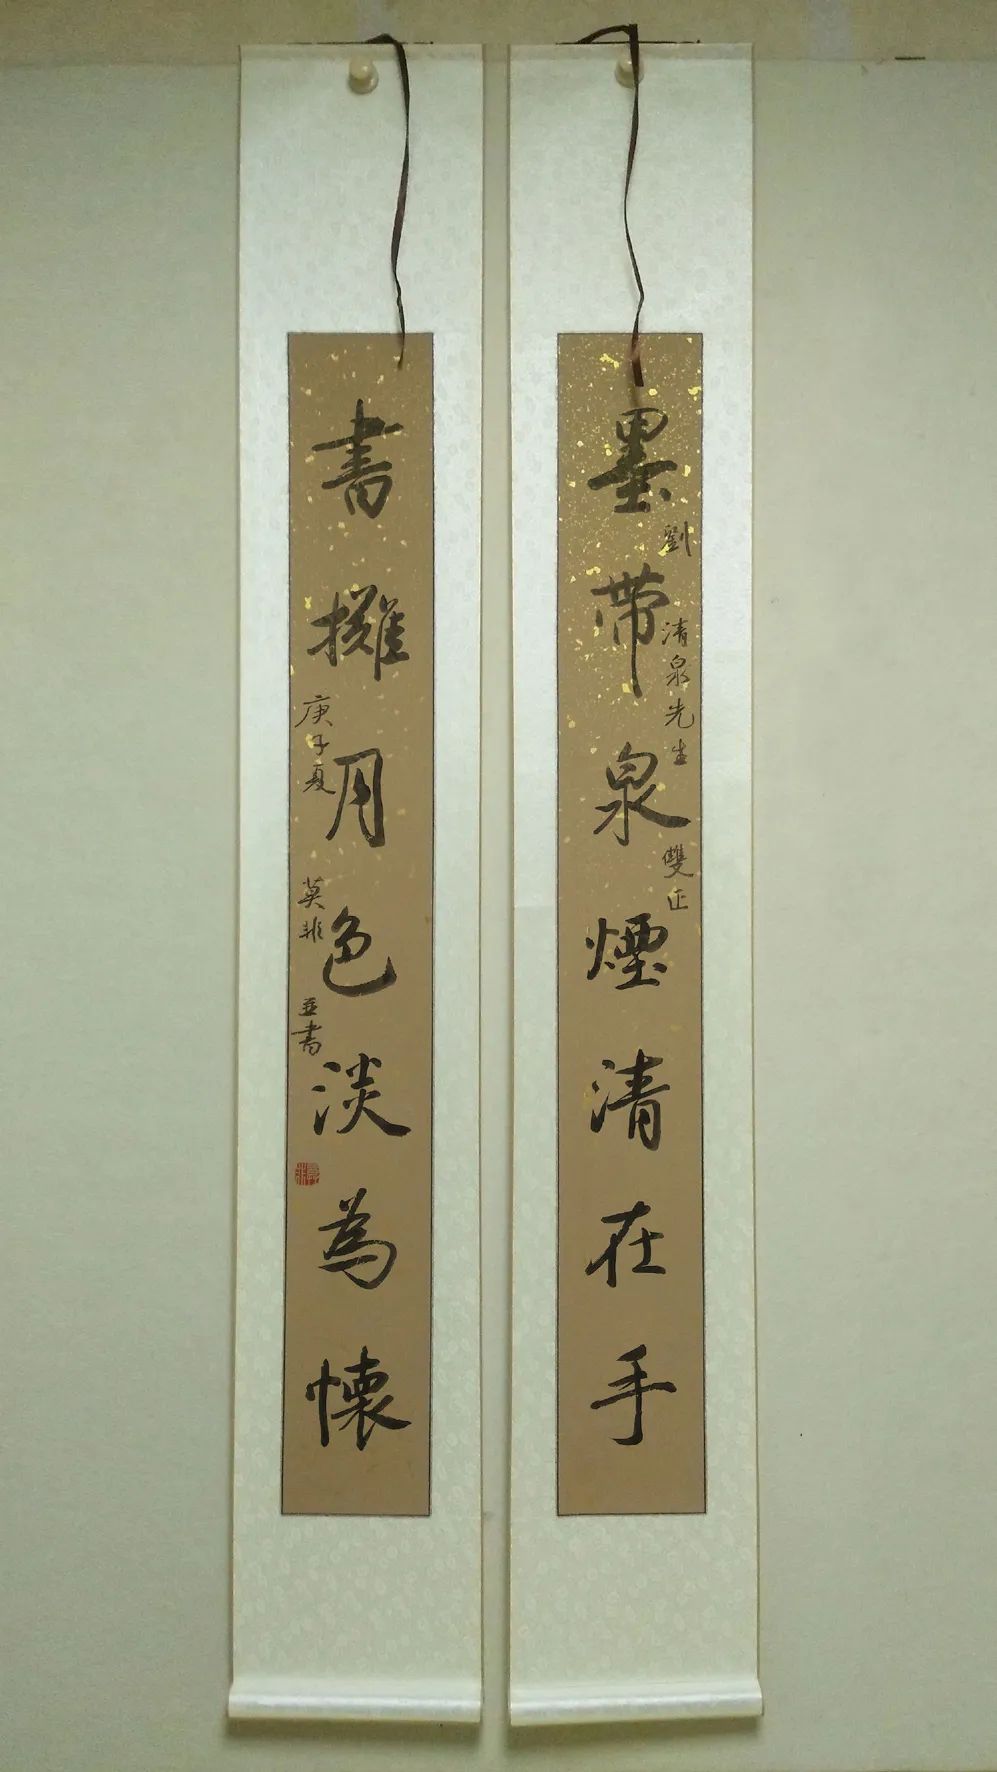 墨帶泉煙清在手
劉清泉先生雙正
書攤月色淡為懷
庚子夏莫非並書